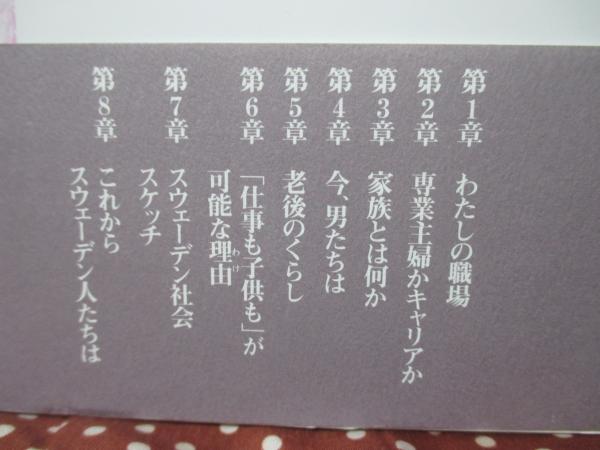 第1章 わたしの職場
第2章 専業主婦かキャリアか
第3章 家族とは何か
第4章 今、男たちは
第5章 老後のくらし
第6章 「仕事も子供も」が
可能な理由
わけ
第7章 スウェーデン社会
スケッチ
第8章 これから
スウェーデン人たちは